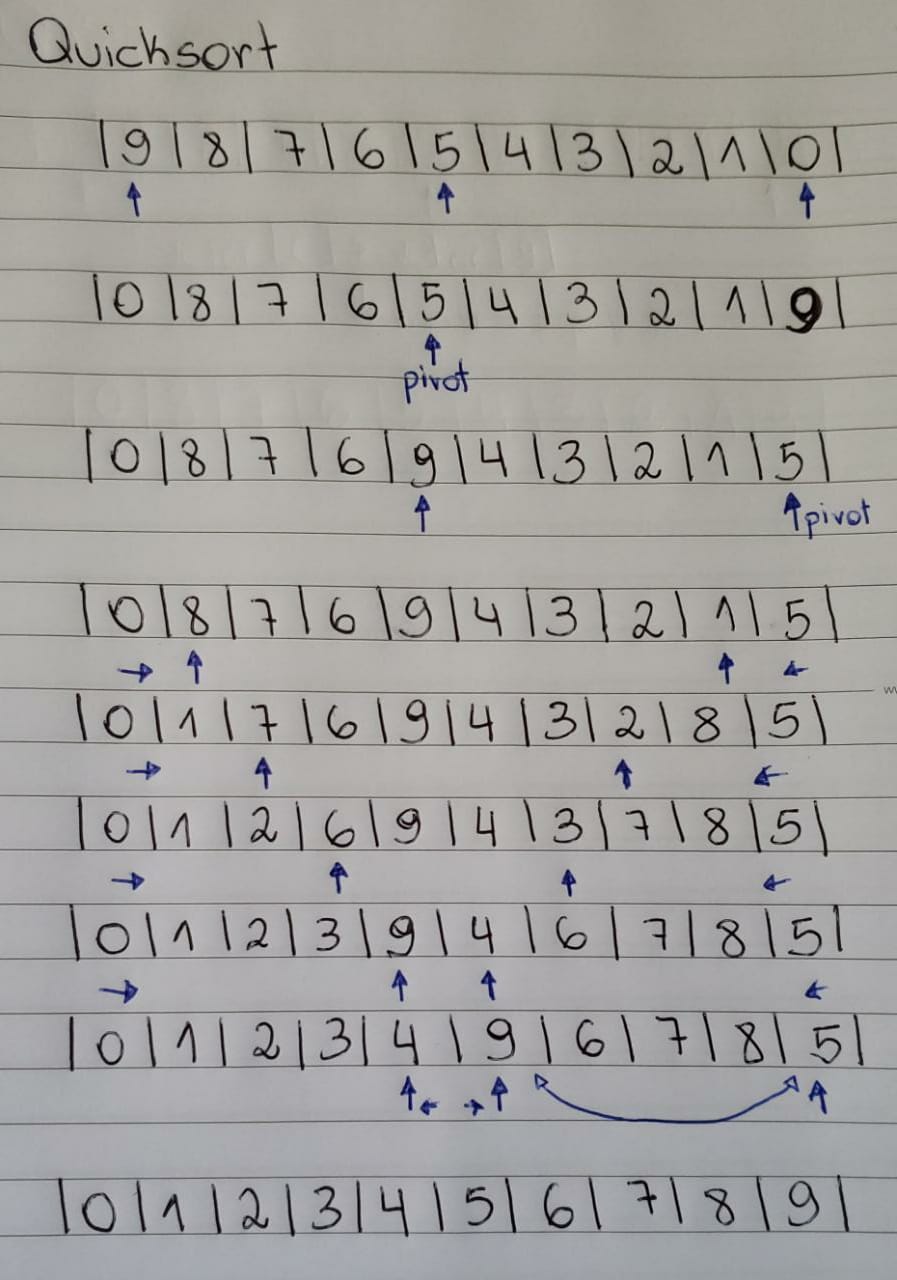 Quicksort
|9|8|7|6|5|4|3|2|1|0|
↑ ↑ ↑
|0|8|7|6|5|4|3|2|1|9|
↑
pivot
|0|8|7|6|9|4|3|2|1|5|
↑ ↑pivot
|0|8|7|6|9|4|3|2|1|5|
→ ↑ ↑ ←
|0|1|7|6|9|4|3|2|8|5|
→ ↑ ↑ ←
|0|1|2|6|9|4|3|7|8|5|
→ ↑ ↑ ←
|0|1|2|3|9|4|6|7|8|5|
→ ↑ ↑ ←
|0|1|2|3|4|9|6|7|8|5|
↑← →↑ ↑
|0|1|2|3|4|5|6|7|8|9|